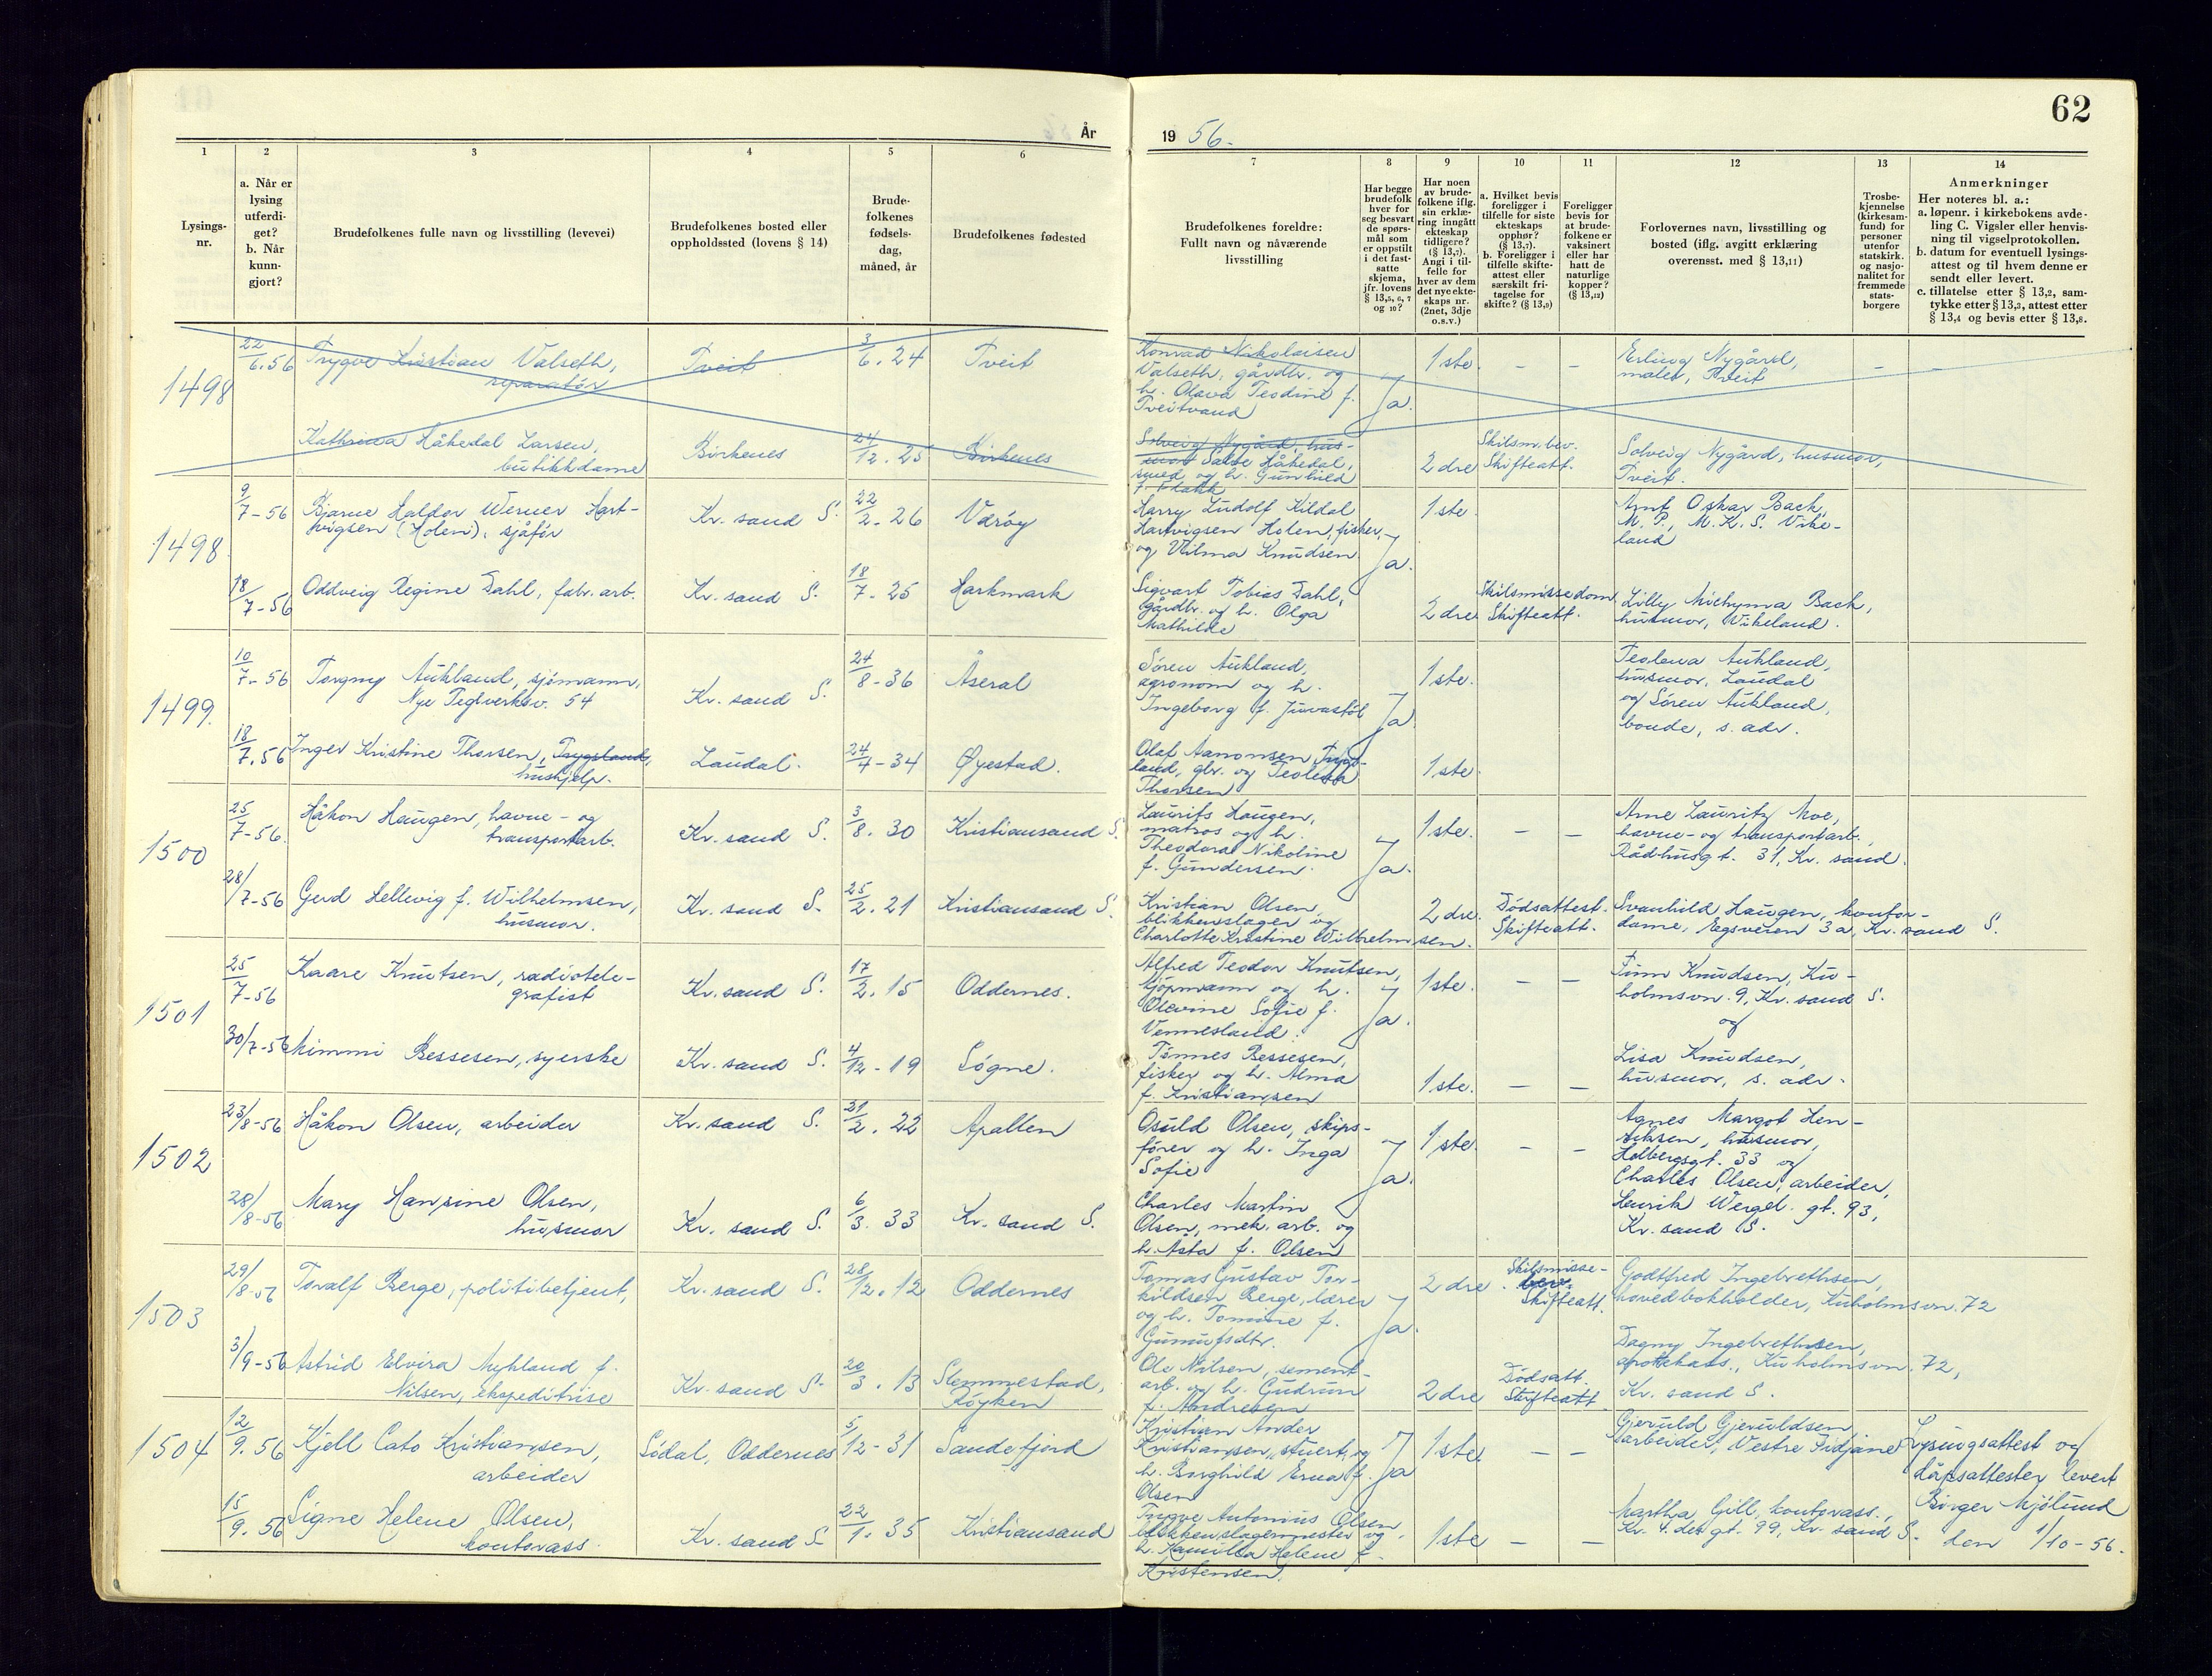 62
År
19 56.
1
2
3
4
5
6
7
8
9
10
11
12
13
14
Lysings-
nr.
a. Når er
lysing
utferdi-
get?
b. Når
kunn-
gjort?
Brudefolkenes fulle navn og livsstilling (levevei)
Brudefolkenes bosted eller
oppholdssted (lovens § 14)
Brude-
folkenes
fødsels-
dag,
måned, år
Brudefolkenes fødested
Brudefolkenes foreldre:
Fullt navn og nåværende
livsstilling
Har begge
brudefolk
hver for
seg besvart
de spørs-
mål som
er oppstilt
i det fast-
satte
skjema,
jfr. lovens
§ 13,5, 6, 7
og 10?
Har noen
av brude-
folkene iflg.
sin erklæ-
ring inngått
ekteskap
tidligere?
(§ 13,7).
Angi i til-
felle for
hver av dem
det nye ekte-
skaps nr.
(2net, 3dje
o.s.v.)
a. Hvilket bevis
foreligger i
tilfelle for siste
ekteskaps
opphør?
(§ 13,7).
b. Foreligger i
tilfelle skifte-
attest eller
særskilt fri-
tagelse for
skifte? (§ 13,9)
Foreligger
bevis for
at brude-
folkene er
vaksinert
eller har
hatt de
naturlige
kopper?
(§ 13,12)
Forlovernes navn, livsstilling og
bosted (iflg. avgitt erklæring
overensst. med § 13,11)
Trosbe-
kjennelse
(kirkesam-
fund) for
personer
utenfor
statskirk.
og nasjo-
nalitet for
fremmede
stats-
borgere
Anmerkninger
Her noteres bl. a.:
a. løpenr. i kirkebokens avde-
ling C. Vigsler eller henvis-
ning til vigselprotokollen.
b. datum for eventuell lysings-
attest og til hvem denne er
sendt eller levert.
c. tillatelse etter § 13,2, sam-
tykke etter § 13,3, attest etter
§ 13,4 og bevis etter § 13,8.
1498
22/6.56
Trygve Kristian Valseth,
reparatør
Tveit
3/6.24
Tveit
Konrad Nikolaisen
Valseth, gårdbr. og
h. Olava Teodine f.
Tveitvand
Ja.
1ste.
–
–
Erling Nygård,
maler, Tveit
–
–
Kathrina Håhedal Larsen,
butikkdame
Birkenes
24/12.25
Birkenes
Solveig Nygård, hus-
mor Salve Håhedal,
smed og h. Gunhild
2dre
Skilsm.bev.
Skifteatt.
Solveig Nygård, husmor,
Tveit.
1498.
9/7-56
Bjarne Haldor Werner Hart-
vigsen (Holen), sjåfør
Kr. sand S.
22/2.26
Værøy
Harry Ludolf Kildal
Hartvigsen Holen, fisker,
og Vilma Knudsen
Ja.
1ste
Arnt Oskar Bach,
M.P., M.K.S. Vike-
land
18/7-56
Oddveig Regine Dahl, fabr. arb.
Kr. sand S.
18/7-25
Harkmark
Sigvart Tobias Dahl,
gårdbr. og h. Olga
Mathilde
2dre
Skilsmissedom
Skifteatt.
Lilly Bach,
husmor, Vikeland.
1499.
10/7-56
Torgny Aukland, sjømann,
Nye Teglverksv. 54
Kr. sand S.
24/8-36
Åseral
Søren Aukland,
agronom og h.
Ingeborg f. Juvastøl
Ja
1ste.
Aukland,
husmor, Laudal
og Søren Aukland,
bonde, s. adr.
18/7.56
Inger Kristine Thorsen, Trygsland,
hushjelp.
Laudal.
24/4-34
Øyestad.
Olaf Aanonsen Tryg-
land, gbr. og
Thorsen
1ste.
1500
25/7-56.
Håkon Haugen, havne- og
transportarb.
Kr. sand S.
3/8.30
Kristiansand S.
Laurits Haugen,
matros og h.
Theodora Nikoline
f. Gundersen.
Ja.
1ste.
–
–
Arne Lauritz Moe,
havne- og transportarb.,
Rådhusgt. 31, Kr. sand.
28/7-56
Gerd Hellevig f. Wilhelmsen,
husmor.
Kr. sand S.
25/2.21
Kristiansand S.
Kristian Olsen,
blikkenslager og
Charlotte Kristine Wilhelmsen.
2dre.
Dødsattest.
Skifteatt.
Svanhild Haugen, kontor-
dame, Egsveien 3a, Kr. sand S.
1501
25/7-56
Kaare Knutsen, radiotele-
grafist
Kr. sand S.
17/2.15
Oddernes.
Alfred Teodor Knutsen,
kjøpmann og h.
Olevine Sofie f.
Vennesland.
Ja.
1ste.
–
–
Finn Knudsen, Ku-
holmsvn. 9, Kr. sand S.
og
30/7-56
Mimmi Bessesen, syerske
Kr. sand S.
4/12-19
Søgne.
Tønnes Bessesen,
fisker og h. Alma
f. Kristiansen
1ste.
–
–
Lisa Knudsen,
husmor, s. adr.
1502
23/8-56
Håkon Olsen, arbeider
Kr. sand S.
21/2.22
Apalten
Osuld Olsen, skips-
fører og h. Inga
Sofie
Ja.
1ste.
–
–
Agnes Margot Hen-
riksen, husmor,
Holbergsgt. 33 og
Charles Olsen, arbeider,
Henrik Wergel. gt. 93,
Kr. sand S.
28/8-56
Mary Hansine Olsen,
husmor
Kr. sand S.
6/3.33
Kr. sand S.
Charles Martin
Olsen, mek. arb. og
h. Asta f. Olsen
1503
29/8-56
Toralf Berge, politibetjent,
Kr. sand S.
28/12.12
Oddernes
Tomas Gustav Tor-
kildsen Berge, lærer
og h. Tomine f.
Gunulfsdtr.
Ja.
2dre
Skilsmisse-
bev.
Skifteatt.
Godtfred Ingebrethsen,
hovedbokholder, Kuholmsvn. 72
3/9-56
Astrid Elvira Myhland f.
Nilsen, ekspeditrise
Kr. sand S.
20/3.13
Slemmestad,
Røyken
Ole Nilsen, sement-
arb. og h. Gudrun
f. Andresen
2dre
Dødsatt.
Skifteatt
Dagny Ingebrethsen,
apotekass., Kuholmsvn. 72,
Kr. sand S.
1504
12/9.56
Kjell Cato Kristiansen,
arbeider
Sødal, Oddernes
5/12-31
Sandefjord
Kristian Ander
Kristiansen, stuert og
h. Borghild Erna f.
Olsen
Ja
1ste
–
–
Gjeruld Gjeruldsen
arbeider, Vestre Fidjane
Lysingsattest og
dåpsattester levert
Birger Mjølund
den 1/10-56.
15/9.56
Signe Helene Olsen,
kontorass.
Kr. sand S
22/1.35
Kristiansand
Yngve Antonius Olsen
blikkenslagermester og
h. Kamilla Helene f.
Kristensen.
1ste
–
–
Martha Gill, kontorass.,
Kr. 4. des gt. 99, Kr. sand S.